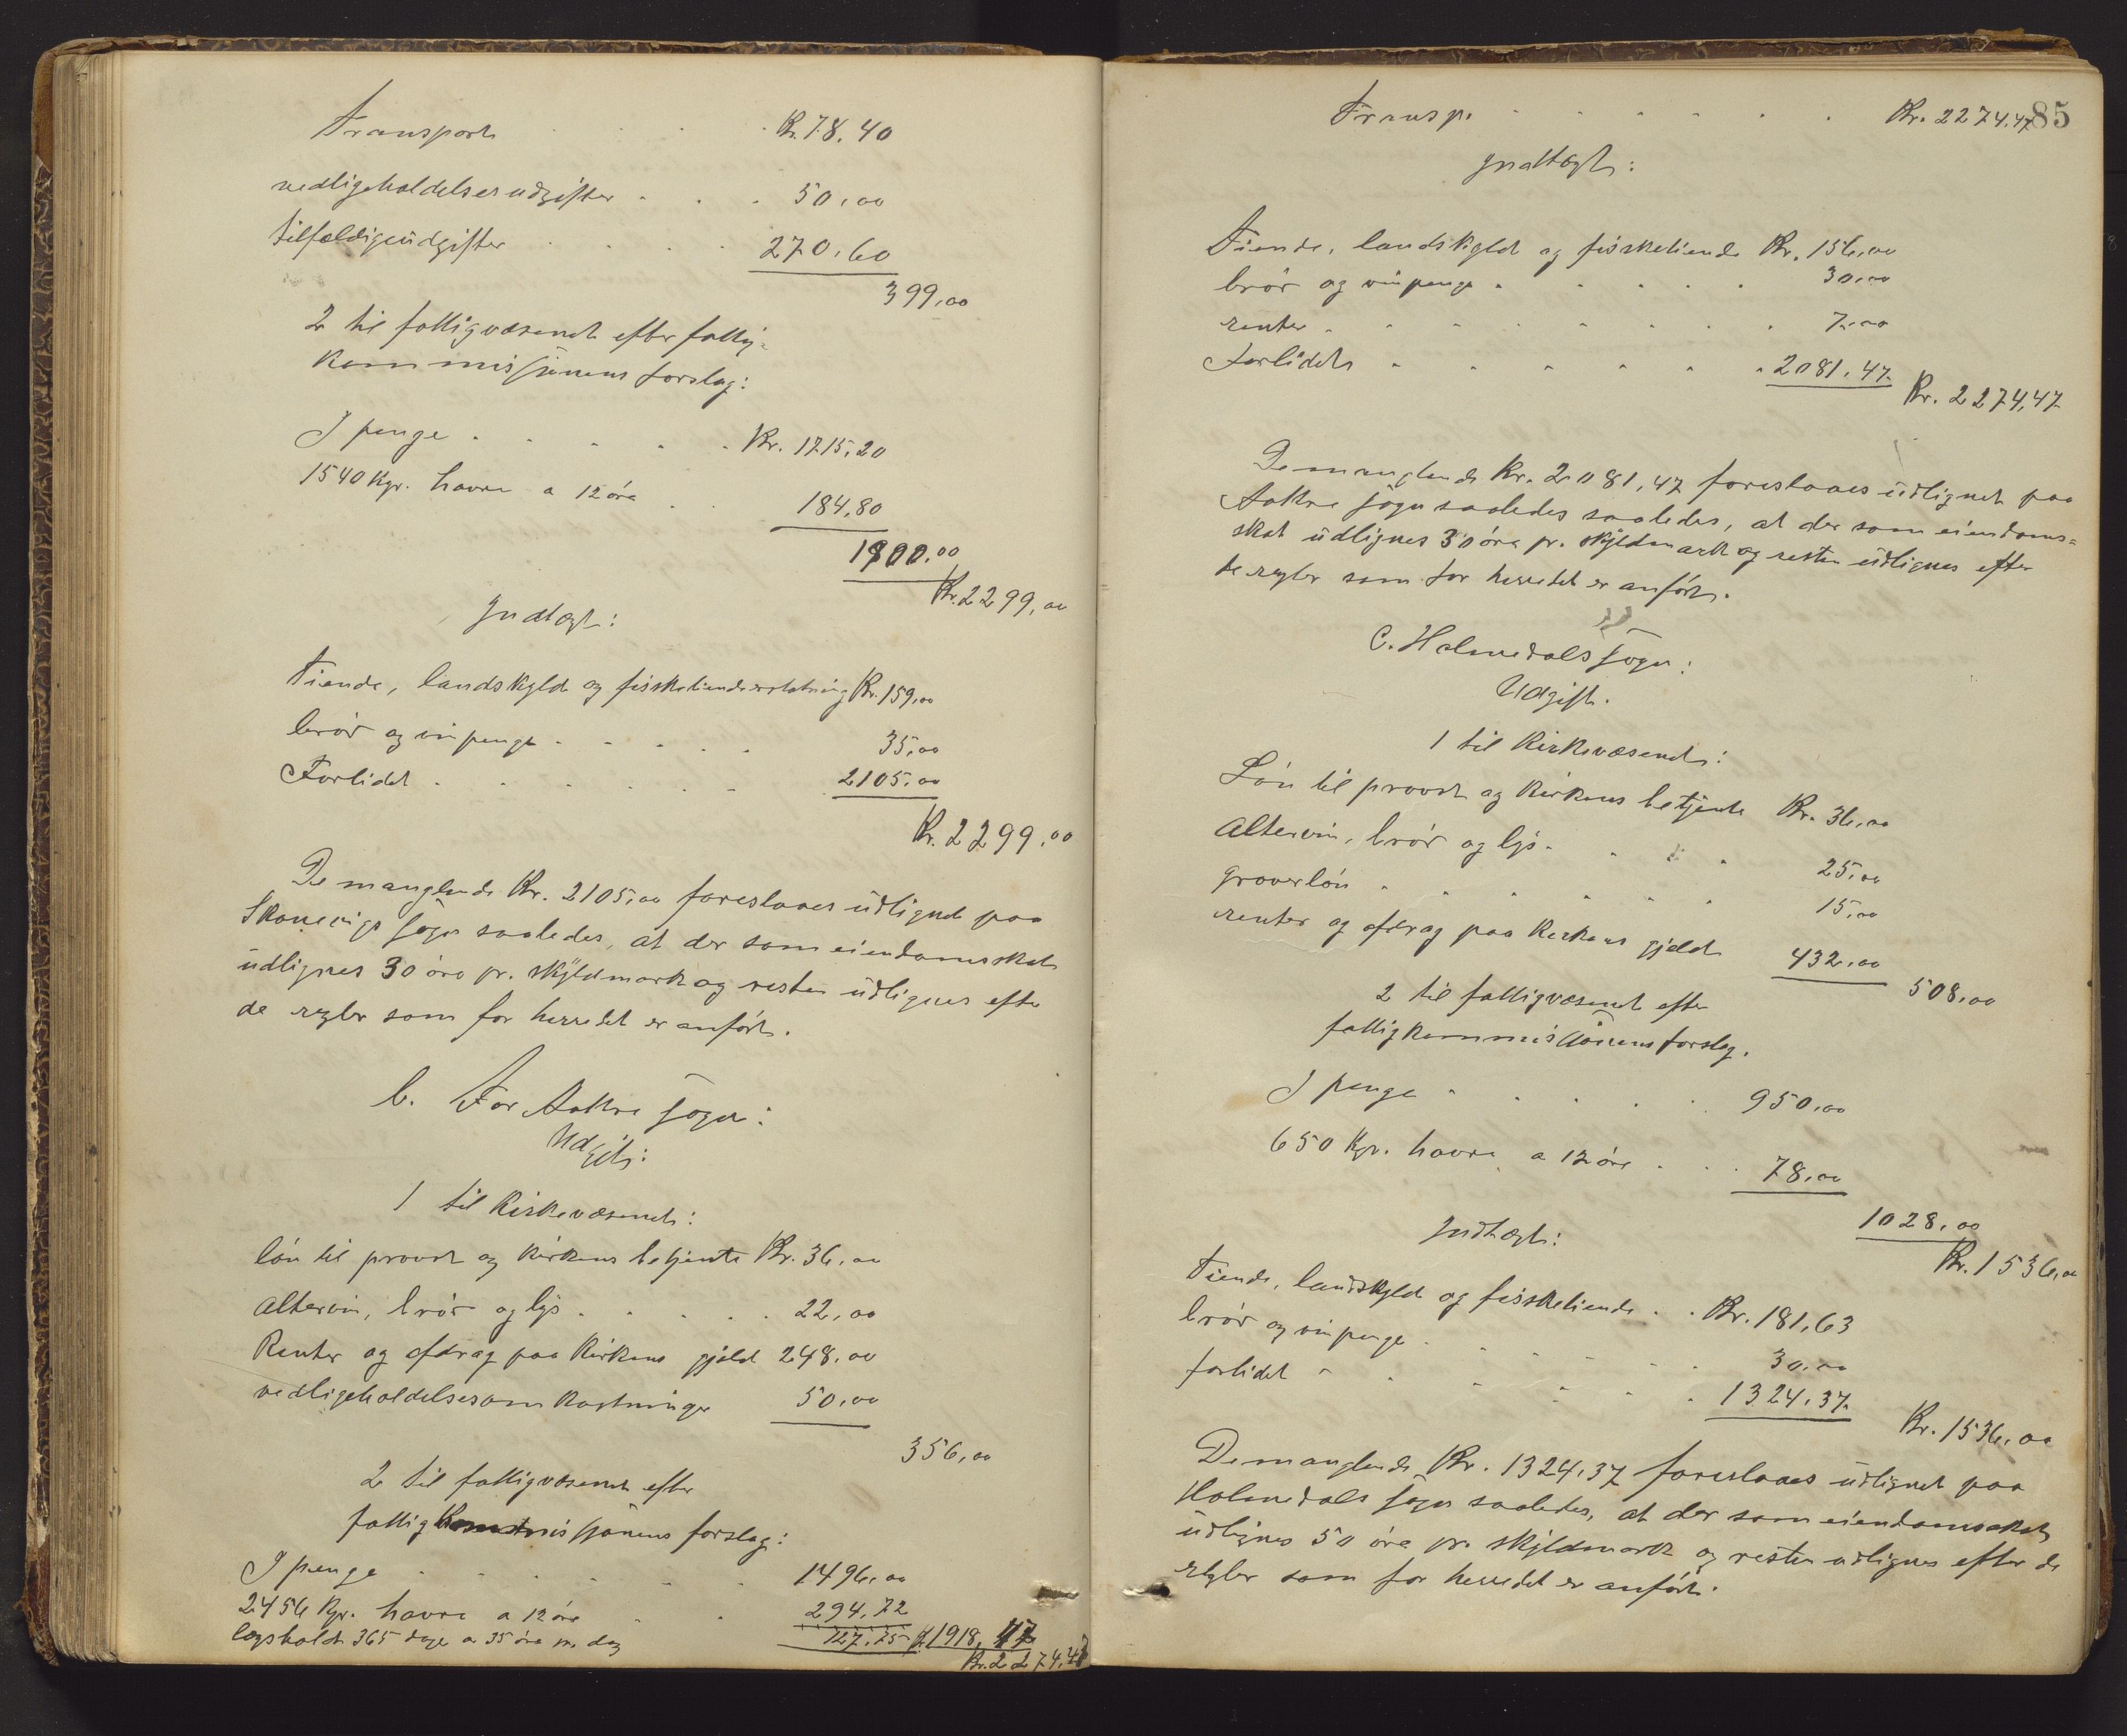 Transport . . . . Kr. 78,40
vedligeholdelsesudgifter . . . 50,00
tilfældigeudgifter . . . . 270,60
399,00
2 til fattigvæsenet efter fattig=
kommissjönens forslag:
I penge . . . . . Kr. 1715,20
1540 Kgr. havre a 12 öre . . 184,80
1900,00
Kr. 2299,00
Indtægt:
Tiende, landskyld og fisketiendeerstatning Kr. 159,00
bröd og vinpenge . . . . . 35,00
Forlidet . . . . . . 2105,00
Kr. 2299,00
De manglende Kr. 2105,00 foreslaaes udlignet paa
Skanevigs sogn saaledes, at der som eiendomsskat
udlignes 30 öre pr. skyldmark og resten udlignes efter
de regler som for herredet er anfört.
b. For Aakre sogn:
Udgift:
1 til Kirkevæsenet:
lön til provst og kirkens betjente Kr. 36,00
altervin, bröd og lys . . . . 22,00
Renter og afdrag paa kirkens gjæld 248,00
vedligeholdelsesomkostninger 50,00
356,00
2 til fattigvæsenet efter
fattigkommissjönens forslag:
I penge . . . . . . 1496,00
2456 Kgr. havre a 12 öre . . 294,72
lægshold 365 dage a 35 öre pr. dag 127,75 1918,47
Kr. 2274,47
85
Transp. . . . . . . Kr. 2274,47
Indtægt:
Tiende, landskyld og fisketiende Kr. 156,00
bröd og vinpenge . . . . . 30,00
renter . . . . . . . . 7,00
Forlidet . . . . . . . 2081,47
Kr. 2274,47
De manglende Kr. 2081,47 foreslaaes udlignet paa
Aakre sogn saaledes saaledes, at der som eiendoms=
skat udlignes 30 öre pr. skyldmark og resten udlignes efter
de regler som for herredet er anfört.
C. Holmedals sogn:
Udgift.
1 til Kirkevæsenet:
Lön til provst og kirkens betjente Kr. 36,00
altervin, bröd og lys . . . . 25,00
graverlön . . . . . . . 15,00
renter og afdrag paa kirkens gjæld 432,00
508,00
2 til fattigvæsenet efter
fattigkommissjönens forslag.
I penge . . . . . 950,00
650 Kgr. havre a 12 öre . . . 78,00
1028,00
Kr. 1536,00
Indtægt:
Tiende, landskyld og fisketiende . . Kr. 181,63
bröd og vinpenge . . . . . 30,00
forlidet . . . . . . . 1324,37
Kr. 1536,00
De manglende Kr. 1324,37 foreslaaes udlignet paa
Holmedals sogn saaledes, at der som eiendomsskat
udlignes 50 öre pr. skyldmark og resten udlignes efter de
regler som for herredet er anfört.